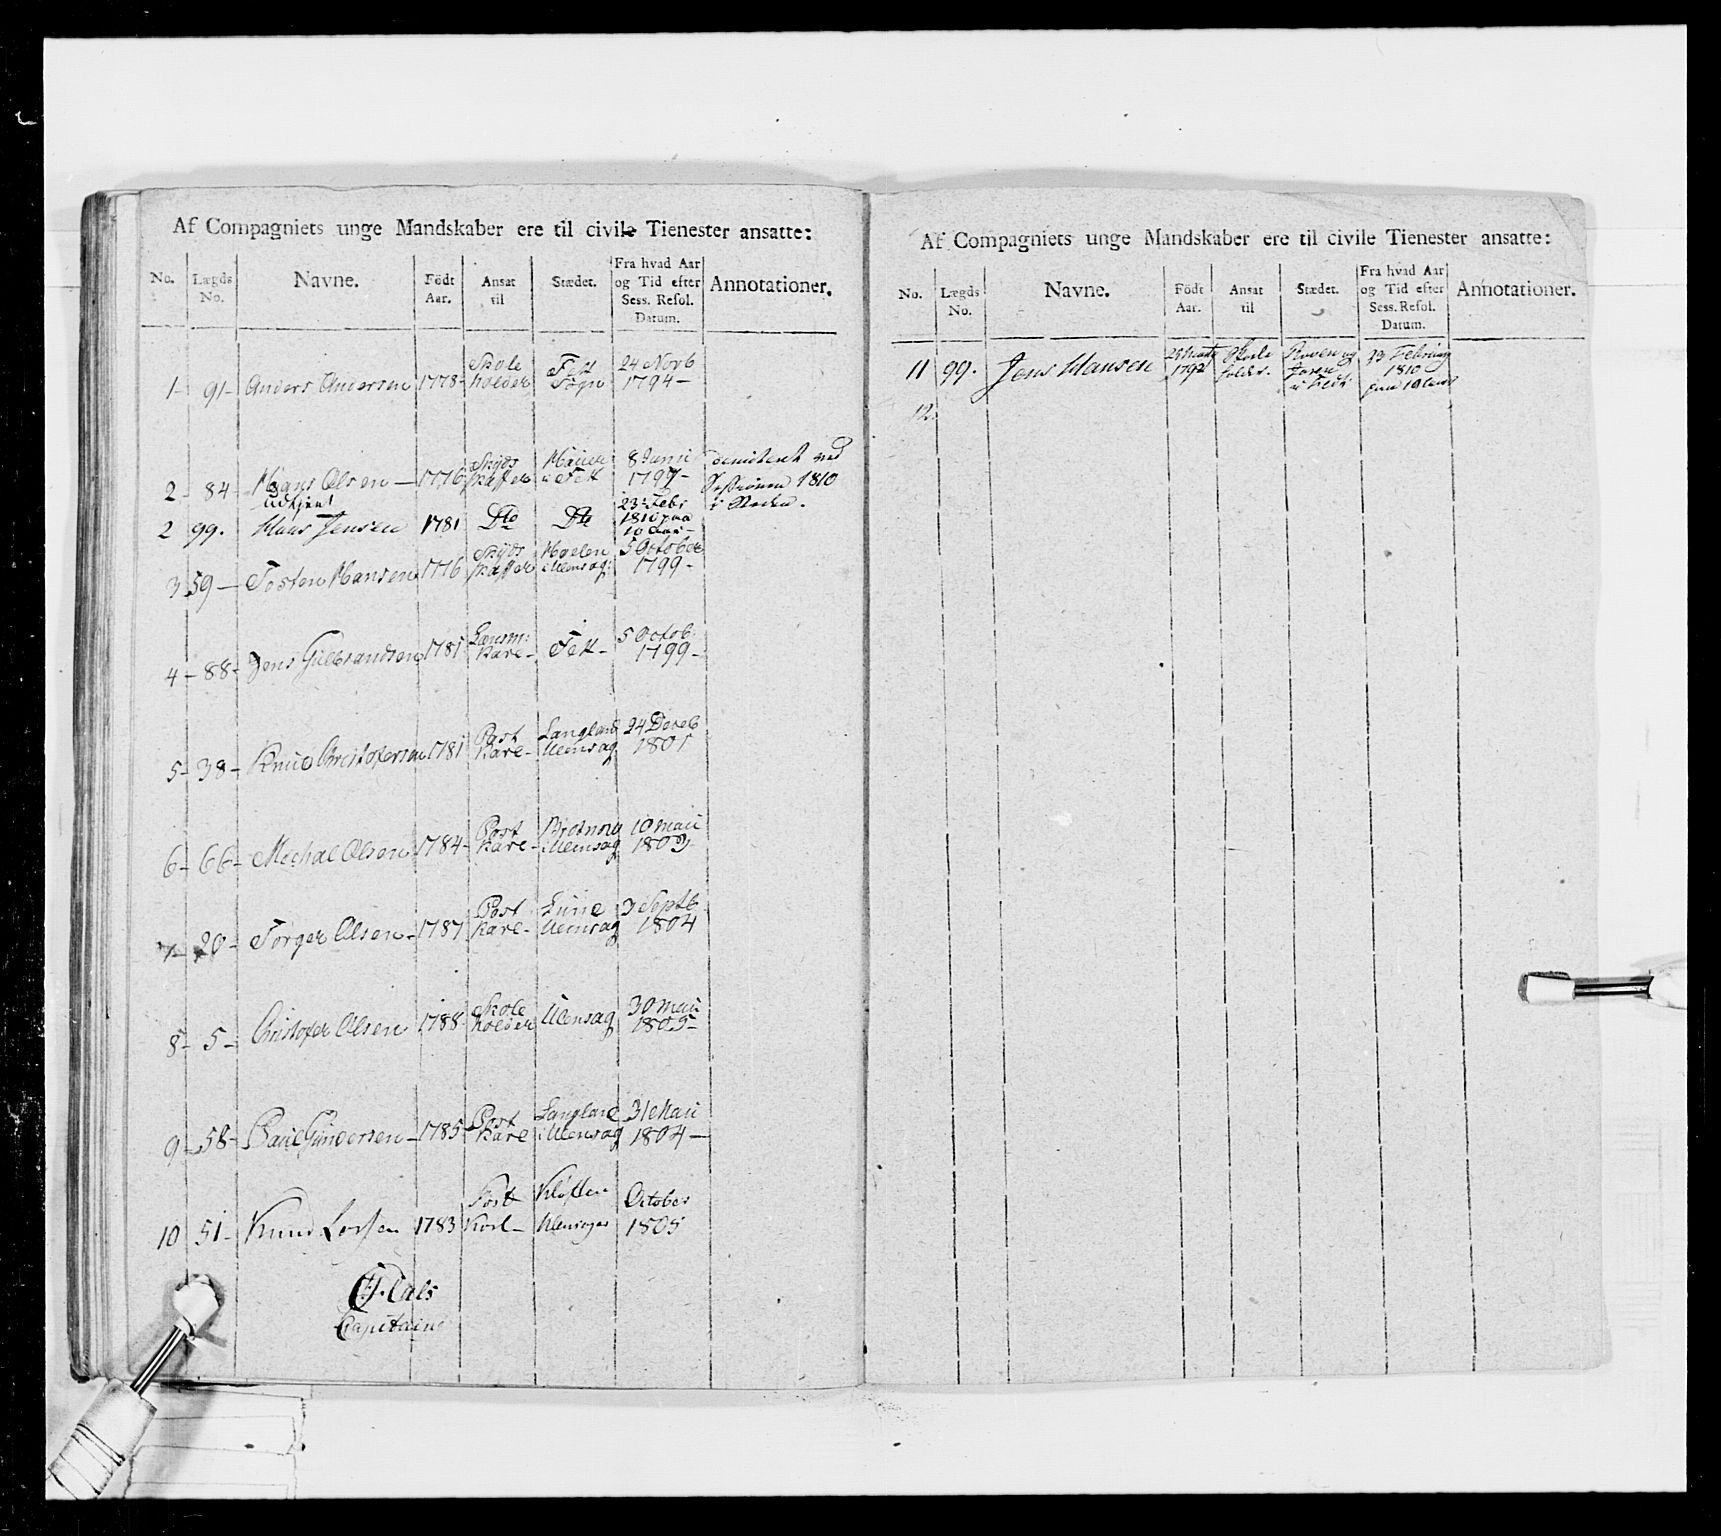 Af Compagniets unge Mandskaber ere til civile Tienester ansatte:
No. Lægds No. Navne. Födt Aar. Ansat til Stædet. Fra hvad Aar og Tid efter Sess. Resol. Datum. Annotationer.
1- 91- Anders Andersen 1778- Skole holder Fett Sogn 24 Novb 1794-
2- 84- Hans Olsen - 1776 Skyds skaffer i Fett 8 Junii 1797- 1810
udtjent
2 99. Hans Jensen 1781 Dto Dto 23 Febr 1810 paa 10 Aar-
3 59- Tosten Hansen 1776 Skyds skaffer i Ulensag: 5 October 1799-
4- 88- Jens Gulbrandsen 1781 Lensm: Karl- Fett- 5 Octob 1799-
5- 38- Knud Christofersen 1781 Post Karl- Langland Ulensag 24 Deceb 1801
6- 66- Mechal Olsen 1784- Post Karl- i Ulensag 10 Maii 1803
7- 20- Torger Olsen- 1787 Post Karl- Lund Ulensag 3 Septb 1804
8- 5- Christofer Olsen 1788- Skole holder Ulensag 30 Maii 1805-
9- 58- Paul Gundersen- 1785- Post Karl Langland i Ulensag 31 Maii 1804-
10 51- Knud Larsen 1783 Post Karl- Kløften Ulensager October 1805
Capitain
Af Compagniets unge Mandskaber ere til civile Tienester ansatte:
No. Lægds No. Navne. Födt Aar. Ansat til Stædet. Fra hvad Aar og Tid efter Sess. Resol. Datum. Annotationer.
11 99. Jens Hansen 1792 Skole holder i Fedt 23 Februarij 1810 paa 10 Aar
12.